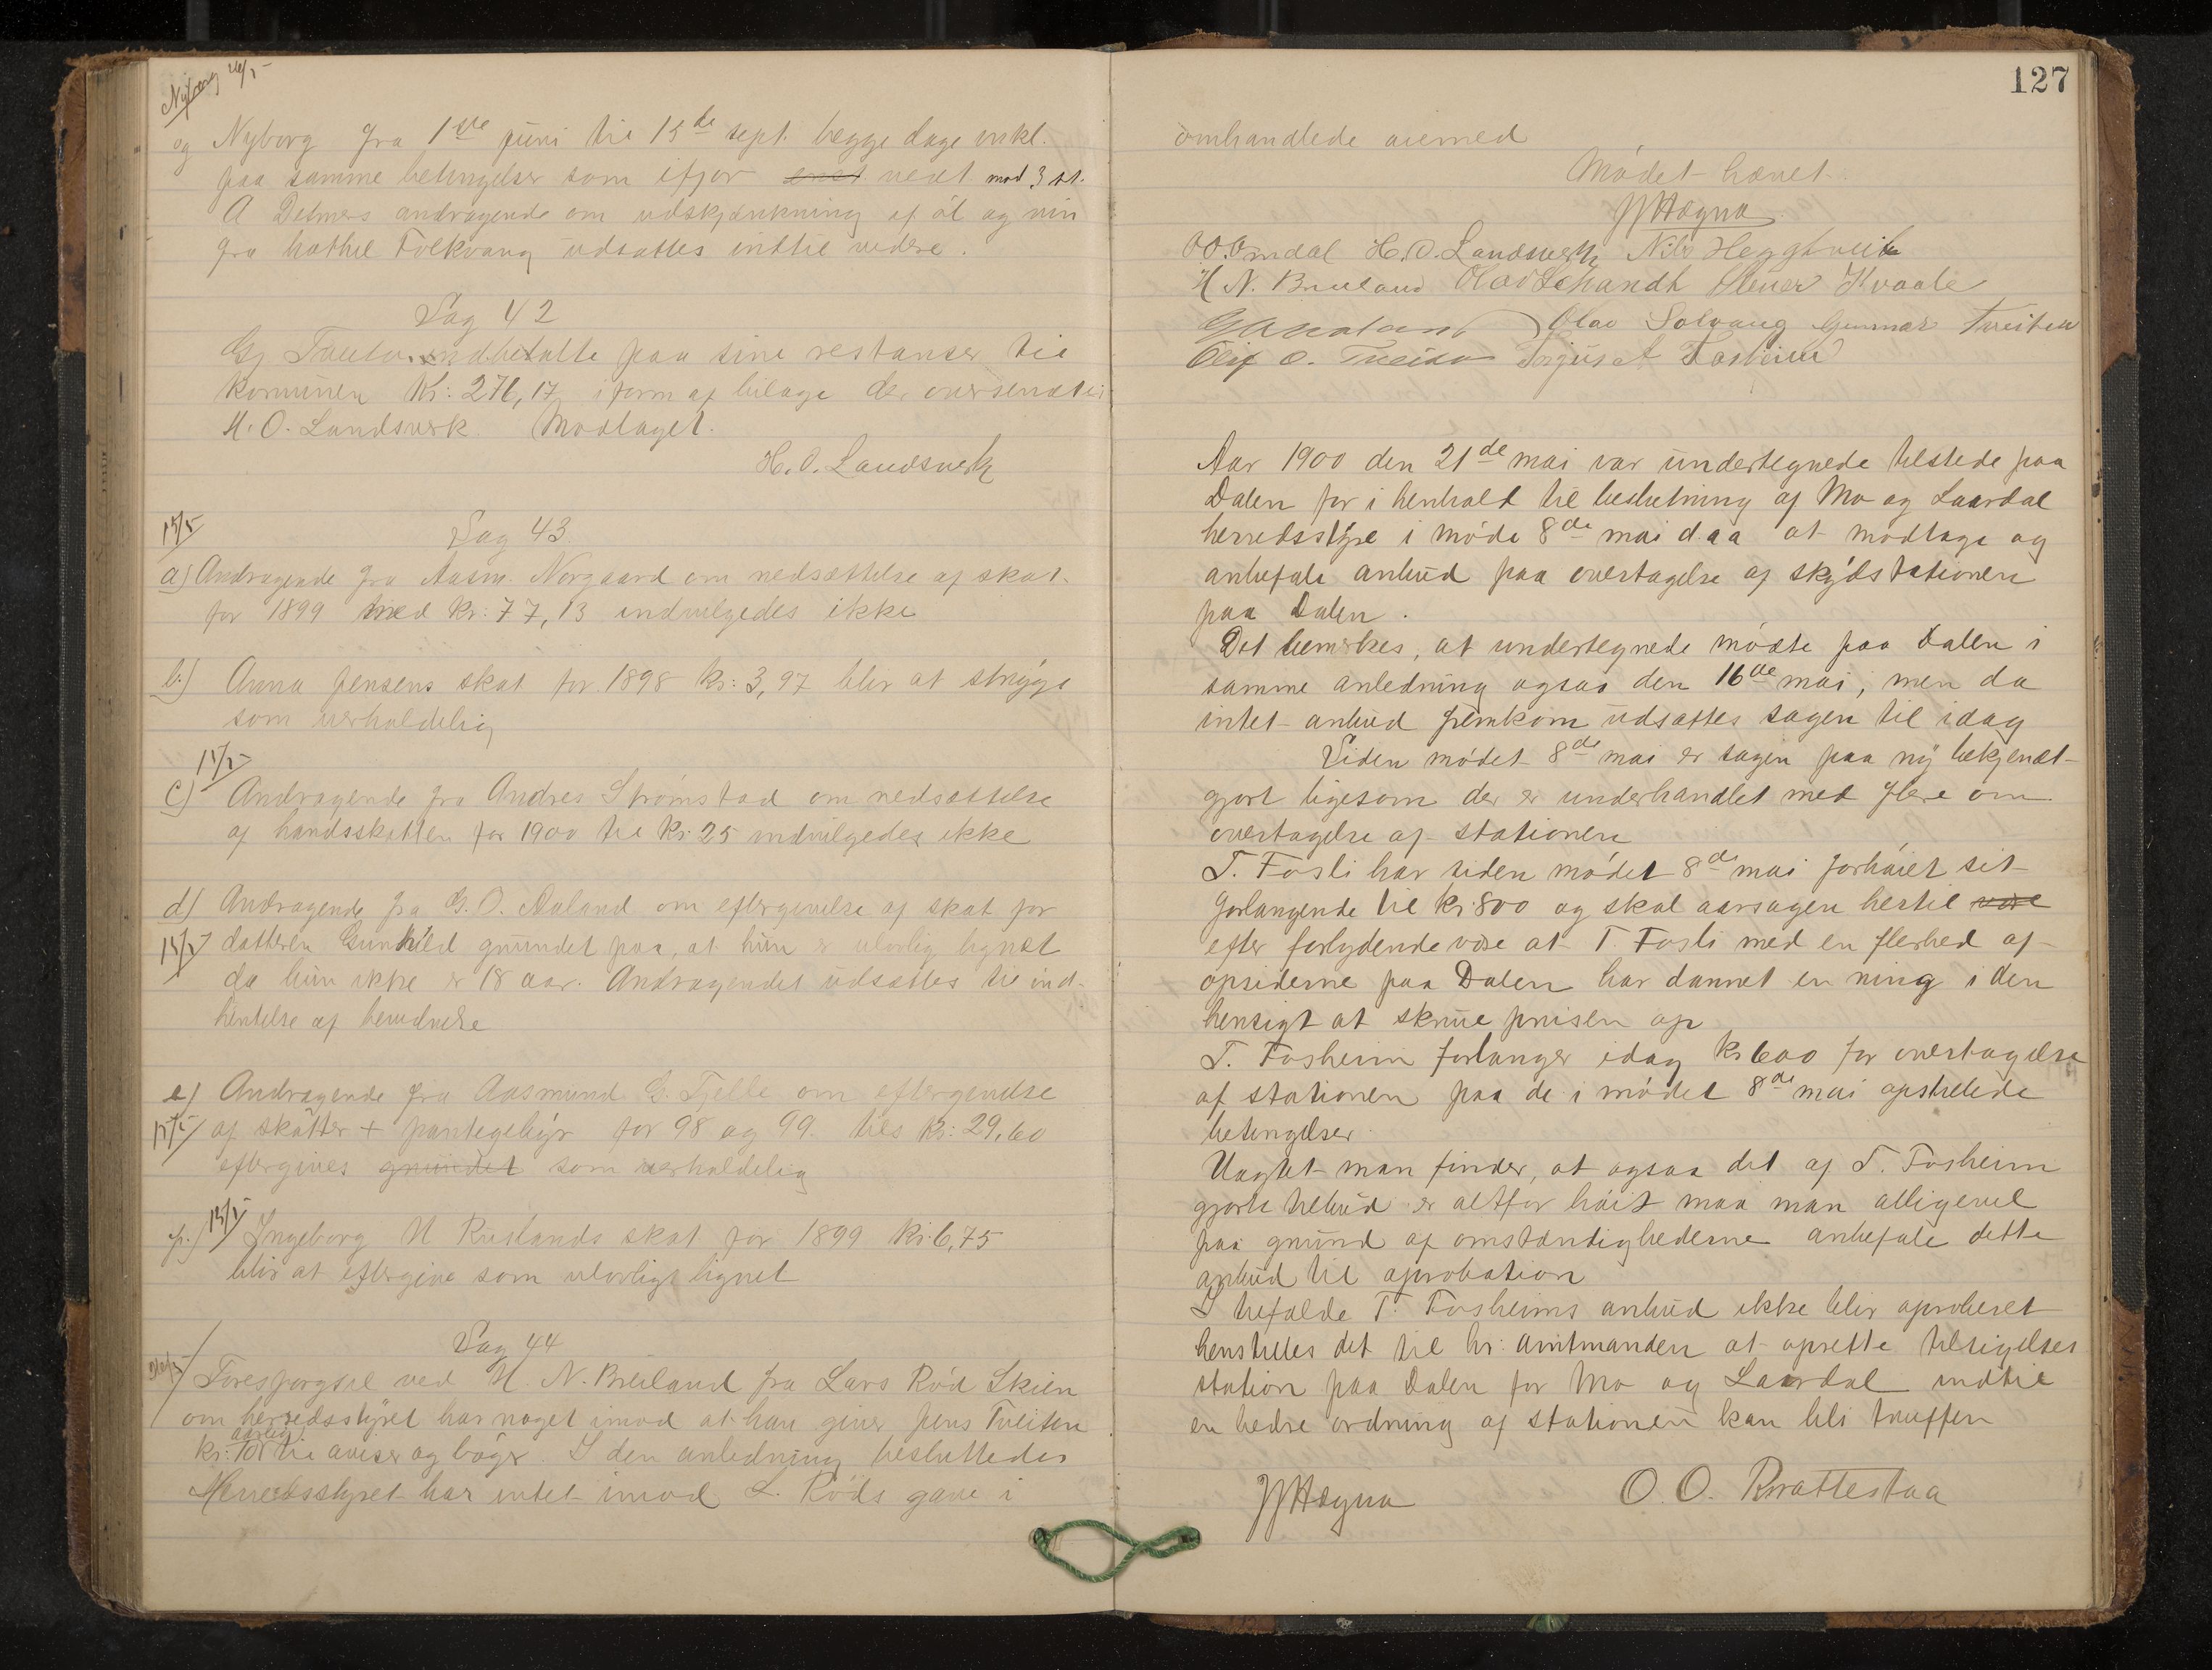 Nyborg 26/5
og Nyborg fra 1ste juni til 15de sept. begge dage inkl.
paa samme betingelser som ifjor vedt. mod 3 st.
A Detmers andragende om udskjænkning af øl og vin
fra hothel Folkvang udsattes indtil videre.
Sag 42
indbetalte paa sine restanser til
kommunen Kr: 276,17 i form af bilage de oversendtes
H. O. Landsverk. Modtaget.
H. O. Landsverk
15/5
Sag 43
a) Andragende fra Aasm. Norgaard om nedsættelse af skat
for 1899 med kr: 77,13 indvilgedes ikke
b.) Anna Jensens skat for 1898 kr: 3,97 blir at stryge
som uerholdelig
15/5
c) Andragende fra Andres Strømstad om nedsættelse
af handsskatten for 1900 til kr 25 indvilgedes ikke
d) Andragende fra G. O. Aaland om eftergivelse af skat for
15/5 datteren Gunhild grundet paa, at hun er ulovlig lignet
da hun ikke er 18 aar. Andragendet udsattes til ind-
hentelse af
e) Andragende fra Aasmund G. Tjelle om eftergivelse
15/5 af skatter + pantegebyr for 98 og 99 tils kr: 29,60
eftergives grundet som uerholdelig
f.) 15/5 Ingeborg N skat for 1899 kr: 6,75
blir at eftergive som ulovligt lignet
Sag 44
Forespørgsel ved H. N. Breiland fra Lars Rød Skien
om herredsstyret har noget imod at han giver Jens Tveiten
aarlig
kr: til aviser og bøger. I den anledning besluttedes
Herredsstyret har intet imod L. Røds gave i
127
omhandlede øiemed
Mødet hævet
H. O. Landsverk Nils Heggtveit
H N. Breiland Olav Kvaale
Olav Solvang Gunnar Tveiten
Olif O. Tveiten Torjus A Fosheim
Aar 1900 den 21de mai var undertegnede tilstede paa
Dalen for i henhold til beslutning af Mo og Laardal
herredsstyre i møde 8de mai daa at modtage og
anbefale anbud paa overtagelse af skydsstationen
paa Dalen.
Det bemerkes, at undertegnede mødte paa Dalen i
samme anledning ogsaa den 16de mai, men da
intet anbud fremkom udsattes sagen til idag
Siden mødet 8de mai er sagen paa ny bekjendt-
gjort ligesom der er underhandlet med flere om
overtagelse af stationen
T. Fosli har siden mødet 8de mai forhøiet sit
forlangende til kr 800 og skal aarsagen hertil være
efter forlydende være at T. Fosli med en flerhed af
opsidderne paa Dalen har dannet en ring i den
hensigt at skrue prisen op
T. Fosheim forlanger idag kr 600 for overtagelse
af stationen paa de i mødet 8de mai opstillede
betingelser.
Uagtet man finder, at ogsaa det af T. Fosheim
gjorte tilbud er altfor høit maa man alligevel
paa grund af omstændighederne anbefale dette
anbud til aprobation
I tilfælde T. Fosheims anbud ikke blir aproberet
henstilles det til hr: amtmanden at oprette tilsigelses
station paa Dalen for Mo og Laardal indtil
en bedre ordning af stationen kan bli truffen
O. O. Brattestaa